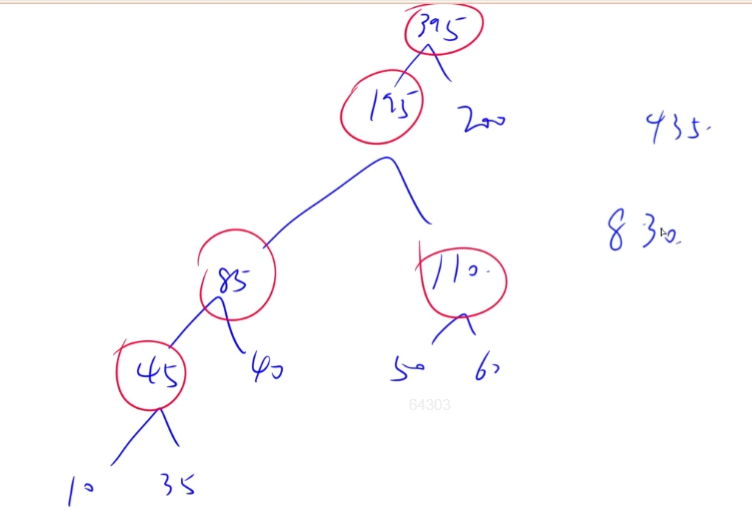 395
195 200 435.
85 110. 830.
45 40 50 60
64303
10 35